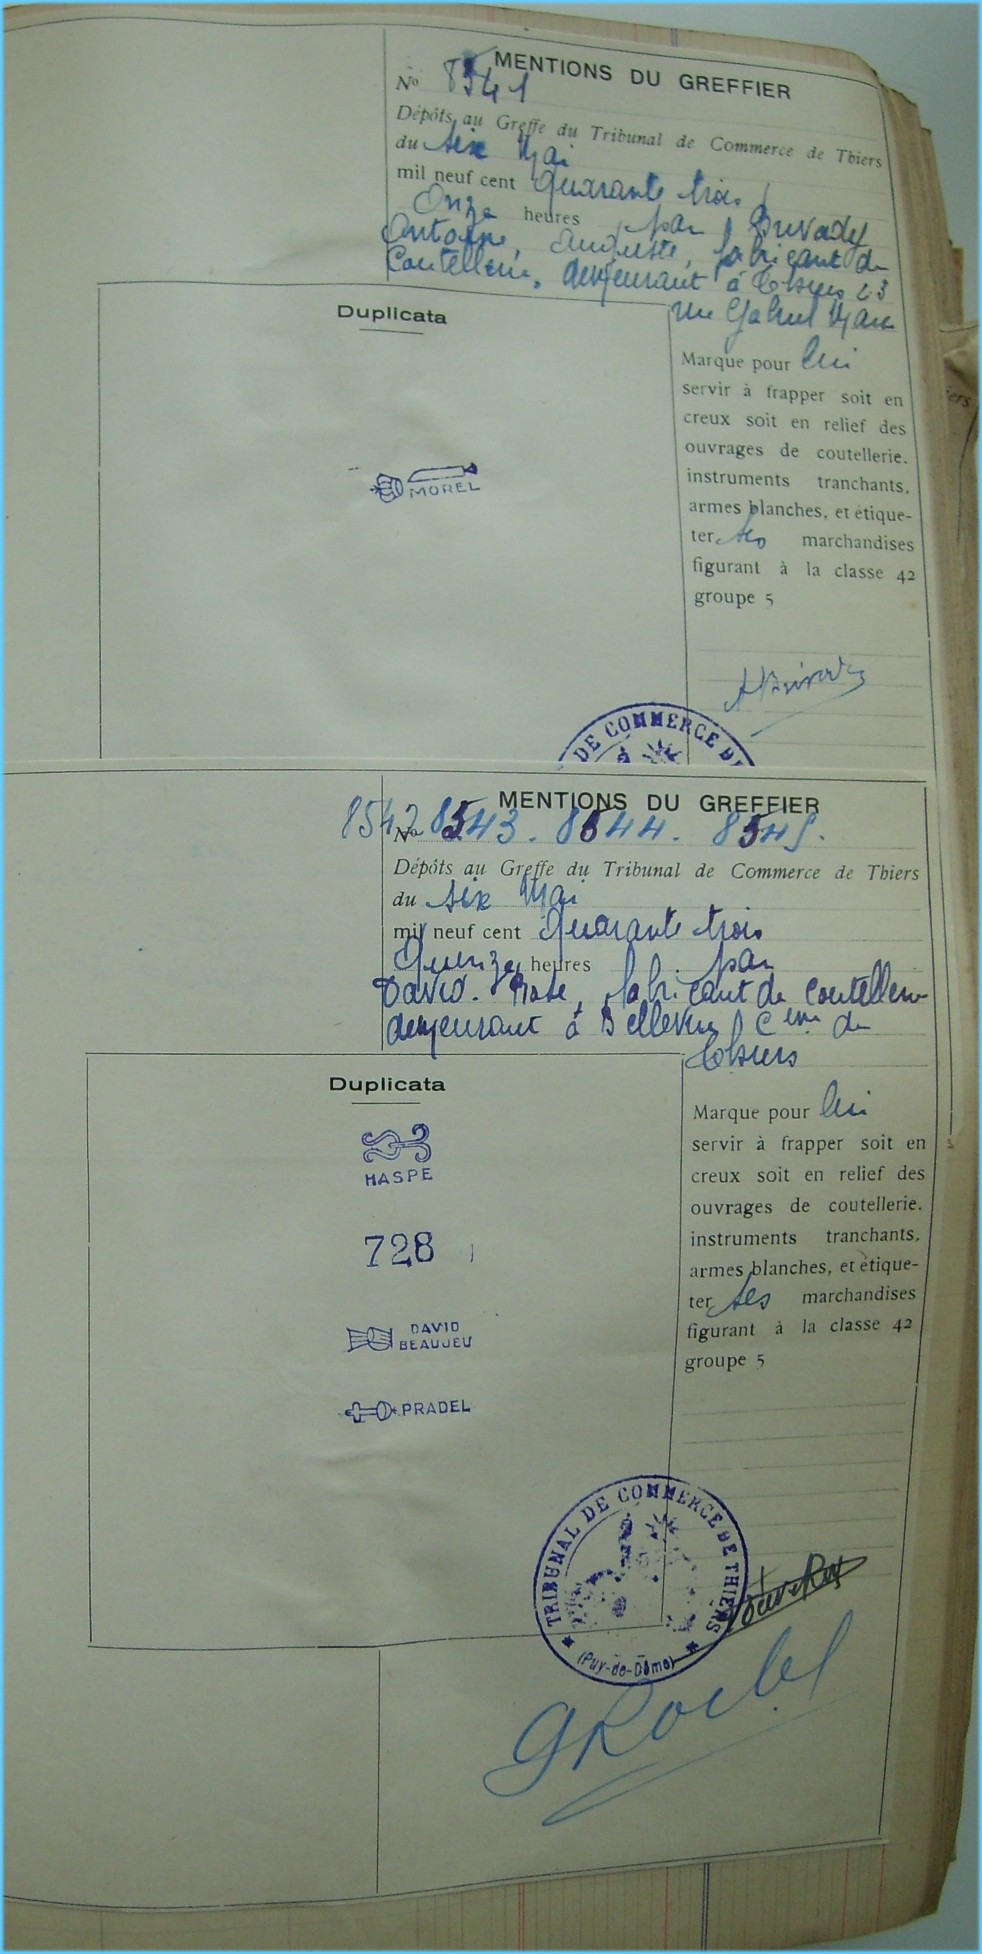 MENTIONS DU GREFFIER
No 8541
Dépôts au Greffe du Tribunal de Commerce de Thiers
du six Mai
mil neuf cent quarante trois
Onze heures par
Antoine, Auguste, fabricant de
Coutellerie, demeurant à Thiers 23
rue Gabriel Marc
Duplicata
MOREL
Marque pour lui
servir à frapper soit en
creux soit en relief des
ouvrages de coutellerie.
instruments tranchants,
armes blanches, et étique-
ter ses marchandises
figurant à la classe 42
groupe 5
DE COMMERCE DE
MENTIONS DU GREFFIER
No 8542 8543. 8544. 8545.
Dépôts au Greffe du Tribunal de Commerce de Thiers
du six Mai
mil neuf cent quarante trois
Quinze heures par
David. , fabricant de Coutellerie
demeurant à Bellevue Cne de
Thiers
Duplicata
HASPE
728
DAVID
BEAUJEU
PRADEL
Marque pour lui
servir à frapper soit en
creux soit en relief des
ouvrages de coutellerie.
instruments tranchants,
armes blanches, et étique-
ter ses marchandises
figurant à la classe 42
groupe 5
TRIBUNAL DE COMMERCE DE THIERS
(Puy-de-Dôme)